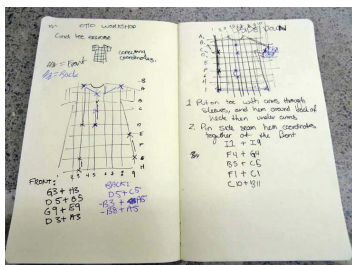 OTIC WORKSHOP
Grid tee exercise
connecting
coordinates.
= Front
= Back
B
A
B
C
D
E
F
G
H
1 2 3 4 5 6 7 8 9
FRONT:
G3 + H3
D5 + B5
G9 + E9
D3 + A3
BACK:
D5 + C5
B3 + H5
B8 + A5
1. Put on tee with arms through
sleeves, and hem around back of
neck then under arms
2. Pin side seam hem coordinates
together at the front
I1 + I9
F4 + G4
B5 + C5
F1 + C1
C10 + B11